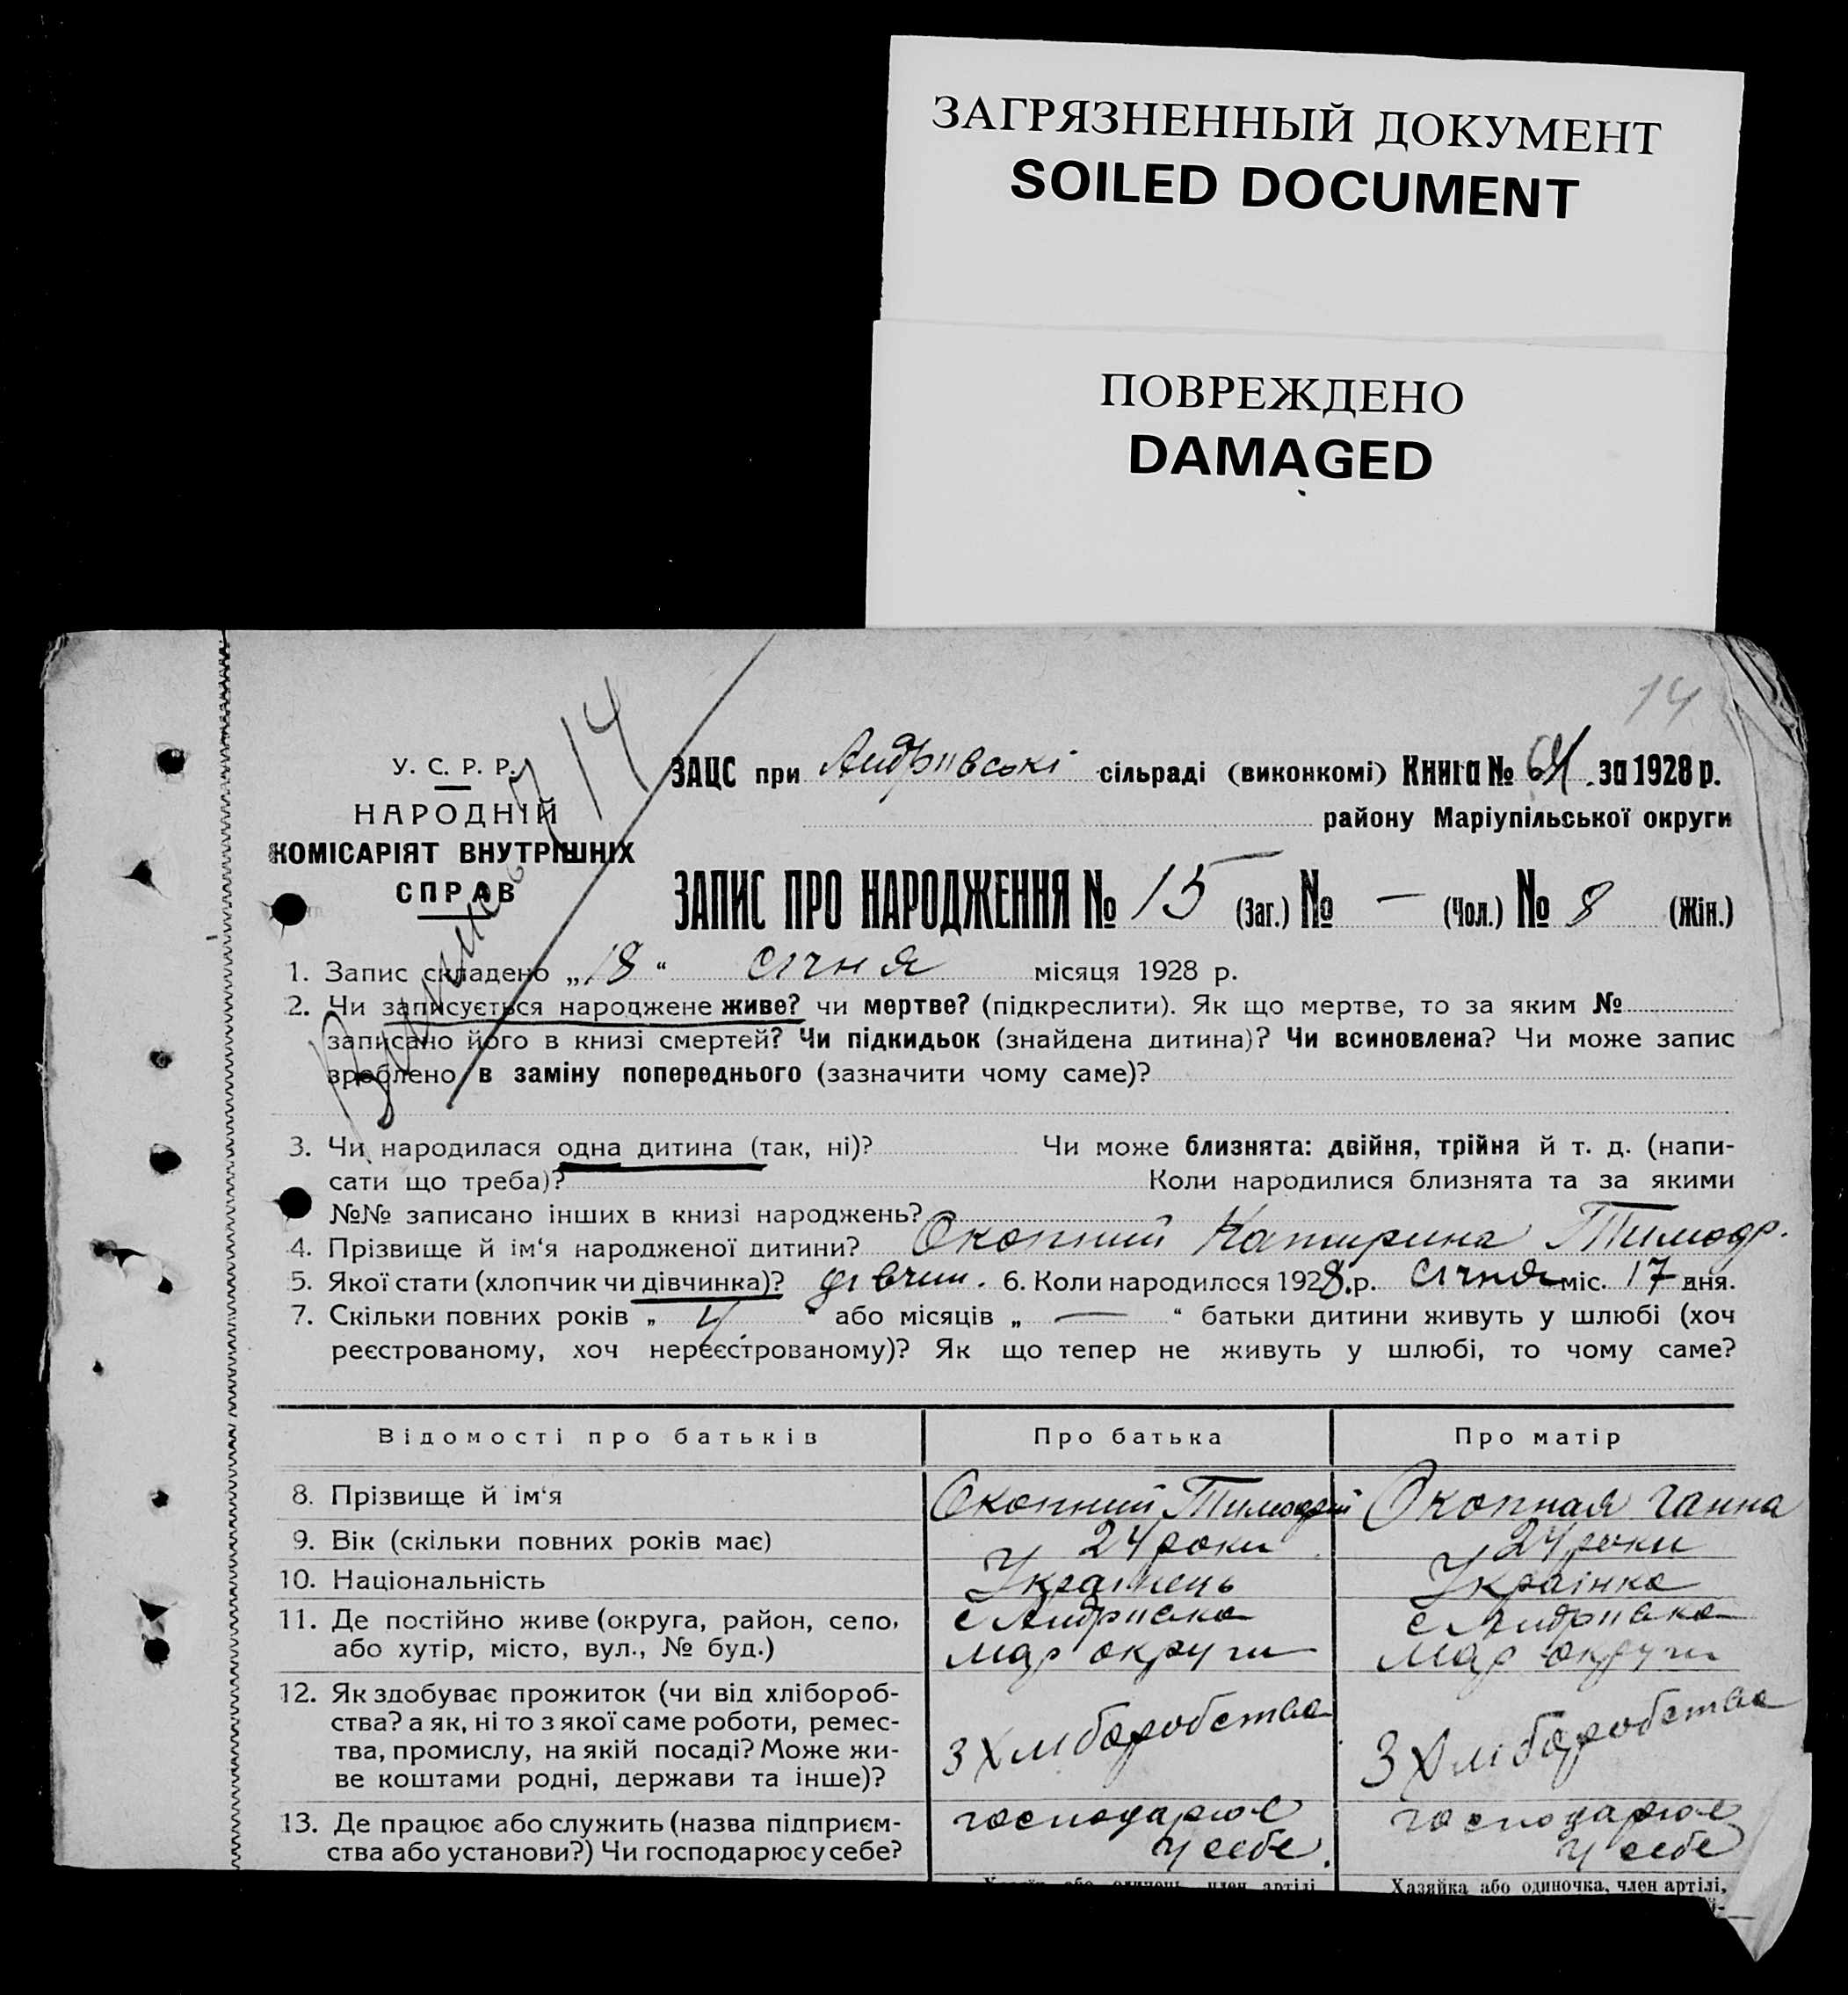 ЗАГРЯЗНЕННЫЙ ДОКУМЕНТ
SOILED DOCUMENT
ПОВРЕЖДЕНО
DAMAGED
14
14
У. С. Р. Р.
НАРОДНІЙ
КОМІСАРІЯТ ВНУТРІШНІХ
СПРАВ
ЗАЦС при Андріівські сільраді (виконкомі) Книга № 64 за 1928 р.
району Маріупільської округи
ЗАПИС ПРО НАРОДЖЕННЯ № 15 (Заг.) № — (Чол.) № 8 (Жін.)
1. Запис складено „18“ січня місяця 1928 р.
2. Чи записується народжене живе? чи мертве? (підкреслити). Як що мертве, то за яким №
записано його в книзі смертей? Чи підкидьок (знайдена дитина)? Чи всиновлена? Чи може запис
зроблено в заміну попереднього (зазначити чому саме)?
3. Чи народилася одна дитина (так, ні)? Чи може близнята: двійня, трійня й т. д. (напи-
сати що треба)? Коли народилися близнята та за якими
№№ записано інших в книзі народжень?
4. Прізвище й ім‘я народженої дитини? Окопний Катирина Тимофр.
5. Якої стати (хлопчик чи дівчинка)? дівчин. 6. Коли народилося 1928.р. січня міс. 17 дня.
7. Скільки повних років „ 4 “ або місяців „ — “ батьки дитини живуть у шлюбі (хоч
реєстрованому, хоч нереєстрованому)? Як що тепер не живуть у шлюбі, то чому саме?
Відомості про батьків Про батька Про матір
8. Прізвище й ім‘я Окопний Тимофій Окопная Ганна
9. Вік (скільки повних років має) 24 роки 24 роки
10. Національність Украінець Украінка
11. Де постійно живе (округа, район, село, с Андріівка с Андріівка
або хутір, місто, вул., № буд.) Мар округи Мар округи
12. Як здобуває прожиток (чи від хлібороб-
ства? а як, ні то з якої саме роботи, ремес-
тва, промислу, на якій посаді? Може жи- З Хліборобства З Хліборобства
ве коштами родні, держави та інше)?
13. Де працює або служить (назва підприєм- господарює господарює
ства або установи?) Чи господарює у себе? у себе. у себе
Хазяїн або одинець, член артілі Хазяйка або одиночка, член артілі,